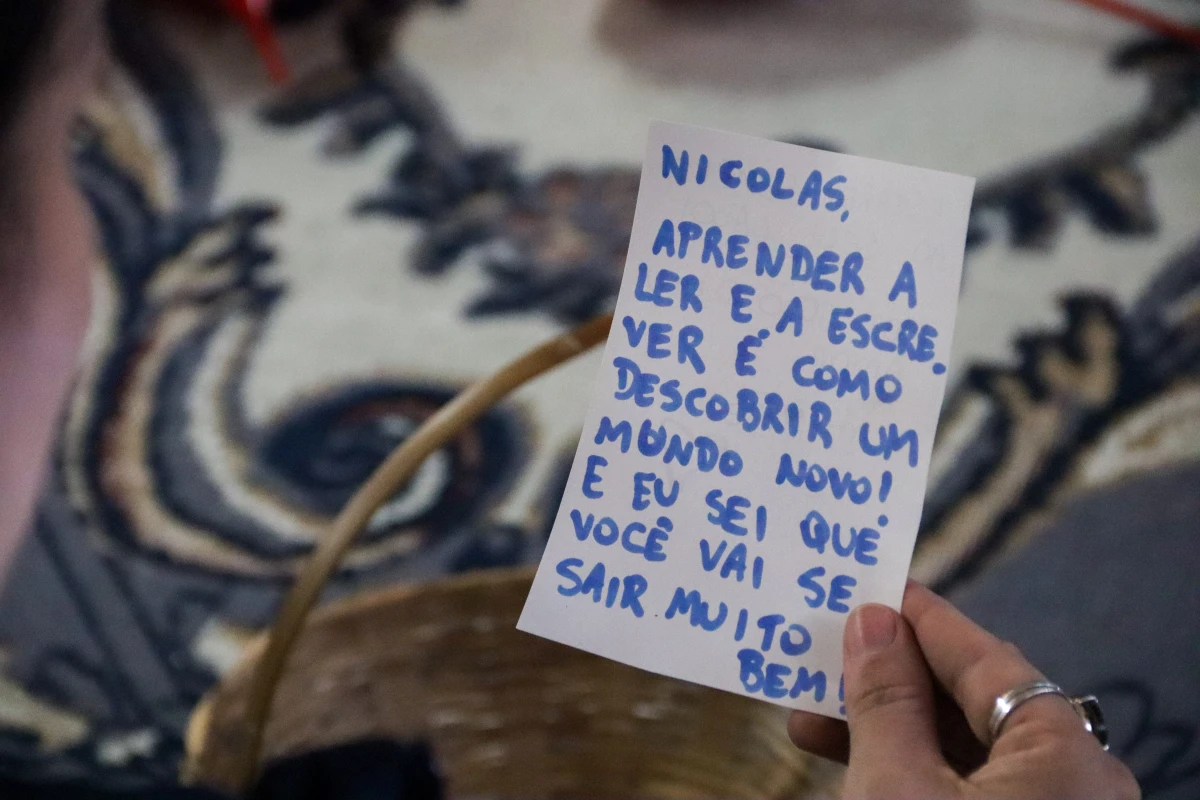 NICOLAS,
APRENDER A
LER E A ESCRE.
VER É COMO
DESCOBRIR UM
MUNDO NOVO!
E EU SEI QUE
VOCÊ VAI SE
SAIR MUITO
BEM!